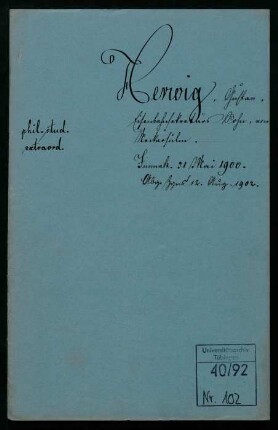 Herwig, Gustav,
Eisenbahnsekretärs Sohn, von
Neckarsulm.
phil. stud.
extraord.
Immatr. 31 Mai 1900.
Abg. Zgns 12. Aug. 1902.
Universitätsarchiv
Tübingen
40/92
Nr. 102